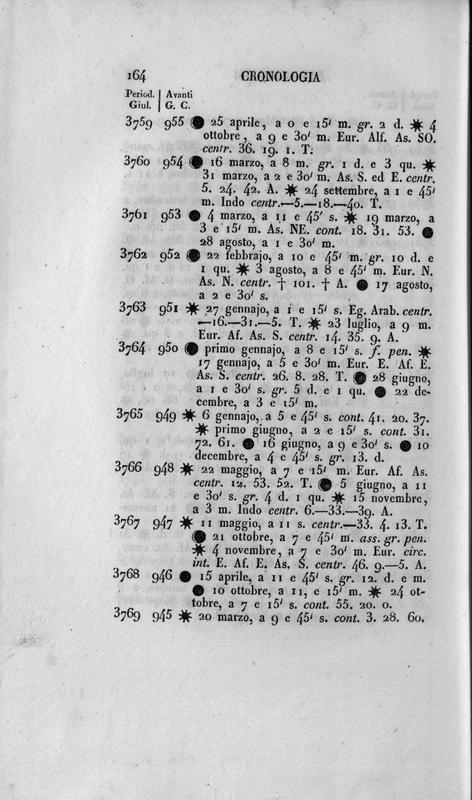 164 CRONOLOGIA
Period. | Avanti
Giul. | G. C.
3759 955 (● 25 aprile, a 0 e 15' m. gr. 2 d. ✷ 4
ottobre, a 9 e 30' m. Eur. Alf. As. SO.
centr. 36. 19. 1. T.
3760 954 (● 16 marzo, a 8 m. gr. 1 d. e 3 qu. ✷
31 marzo, a 2 e 30' m. As. S. ed E. centr.
5. 24. 42. A. ✷ 24 settembre, a 1 e 45'
m. Indo centr.—5.—18.—40. T.
3761 953 ● 4 marzo, a 11 e 45' s. ✷ 19 marzo, a
3 e 15' m. As. NE. cont. 18. 31. 53. ●
28 agosto, a 1 e 30' m.
3762 952 (● 22 febbrajo, a 10 e 45' m. gr. 10 d. e
1 qu. ✷ 3 agosto, a 8 e 45' m. Eur. N.
As. N. centr. † 101. † A. ● 17 agosto,
a 2 e 30' s.
3763 951 ✷ 27 gennajo, a 1 e 15' s. Eg. Arab. centr.
—16.—31.—5. T. ✷ 23 luglio, a 9 m.
Eur. Af. As. S. centr. 14. 35. 9. A.
3764 950 ● primo gennajo, a 8 e 15' s. f. pen. ✷
17 gennajo, a 5 e 30' m. Eur. E. Af. E.
As. S. centr. 26. 8. 28. T. (● 28 giugno,
a 1 e 30' s. gr. 5 d. e 1 qu. ● 22 de-
cembre, a 3 e 15' m.
3765 949 ✷ 6 gennajo, a 5 e 45' s. cont. 41. 20. 37.
✷ primo giugno, a 2 e 15' s. cont. 31.
72. 61. ● 16 giugno, a 9 e 30' s. ● 10
decembre, a 4 e 45' s. gr. 13. d.
3766 948 ✷ 22 maggio, a 7 e 15' m. Eur. Af. As.
centr. 12. 53. 52. T. (● 5 giugno, a 11
e 30' s. gr. 4 d. 1 qu. ✷ 15 novembre,
a 3 m. Indo centr. 6.—33.—39. A.
3767 947 ✷ 11 maggio, a 11 s. centr.—33. 4. 13. T.
(● 21 ottobre, a 7 e 45' m. ass. gr. pen.
✷ 4 novembre, a 7 e 30' m. Eur. circ.
int. E. Af. E. As. S. centr. 46. 9.—5. A.
3768 946 ● 15 aprile, a 11 e 45' s. gr. 12. d. e m.
● 10 ottobre, a 11, e 15' m. ✷ 24 ot-
tobre, a 7 e 15' s. cont. 55. 20. 0.
3769 945 ✷ 20 marzo, a 9 e 45' s. cont. 3. 28. 60.